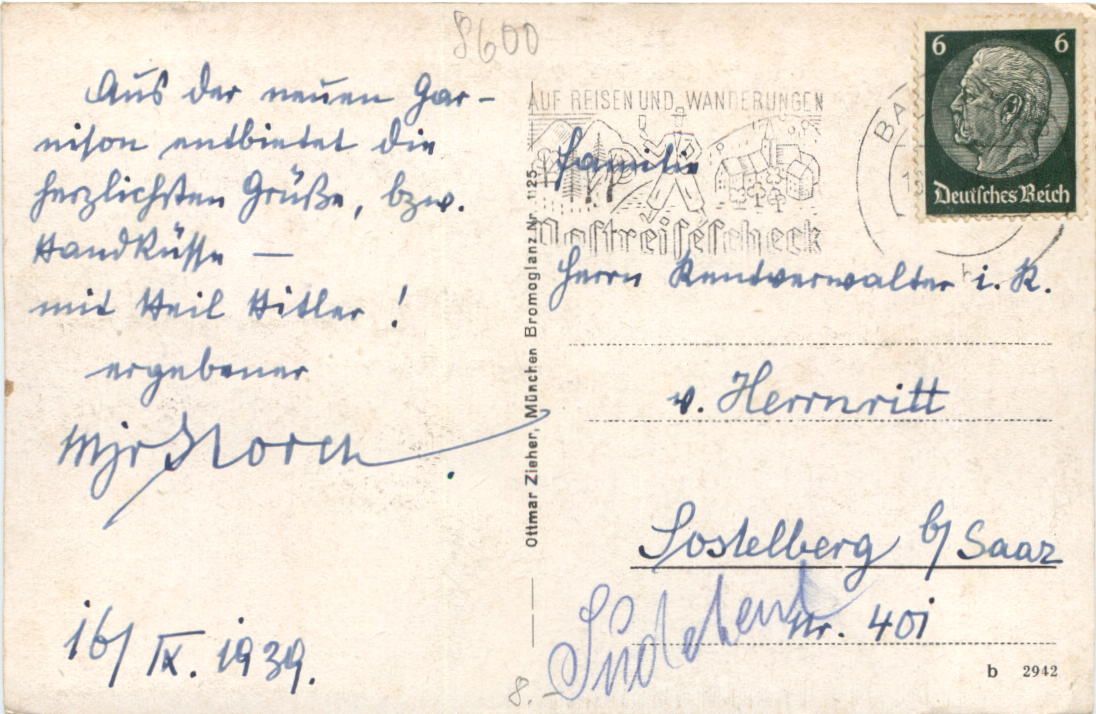 8600
Aus der neuen Gar-
nison entbietet die
herzlichsten Grüße, bzw.
Handküsse —
mit Heil Hitler!
ergebener
Mjr
16/IX. 1939.
Ottmar Zieher, München Bromoglanz Nr. 1125
AUF REISEN UND WANDERUNGEN
Postreisescheck
BA
6 6
Deutsches Reich
Familie
Herrn Rentverwalter i. R.
v. Herrnritt
Sostelberg b/ Saaz
Nr. 401
8.-
b 2942